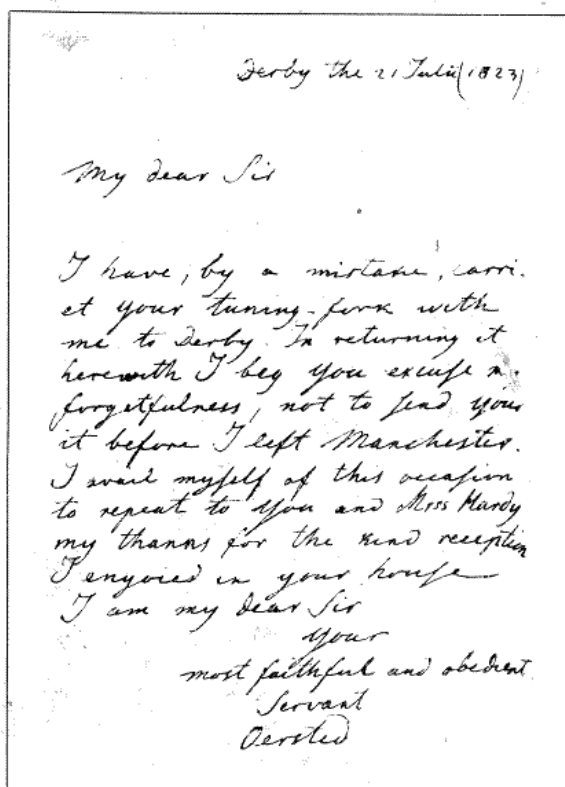 Derby the 21 Julii (1823)
My dear Sir
I have, by a mistake, carri-
et your tuning-fork with
me to Derby. In returning it
herewith I beg you excuse m.
forgetfulness, not to send your
it before I left Manchester.
I avail myself of this occasion
to repeat to you and Mrss Hardy
my thanks for the kind reception
I enyoied in your house
I am my dear Sir
your
most faithful and obedient
Servant
Oersted